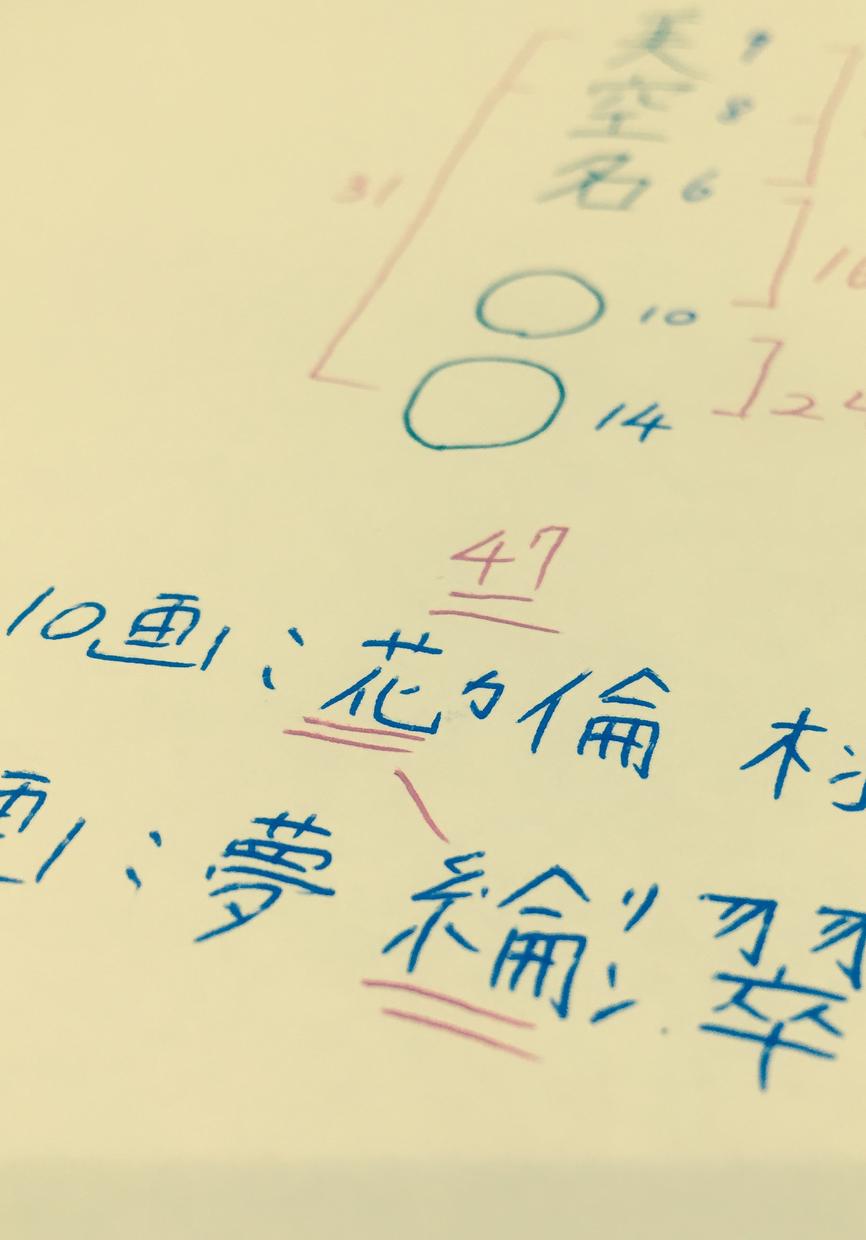 美 9
空 8
31 名 6
10 16
14 2
47
10画；花 倫
画；夢 綸